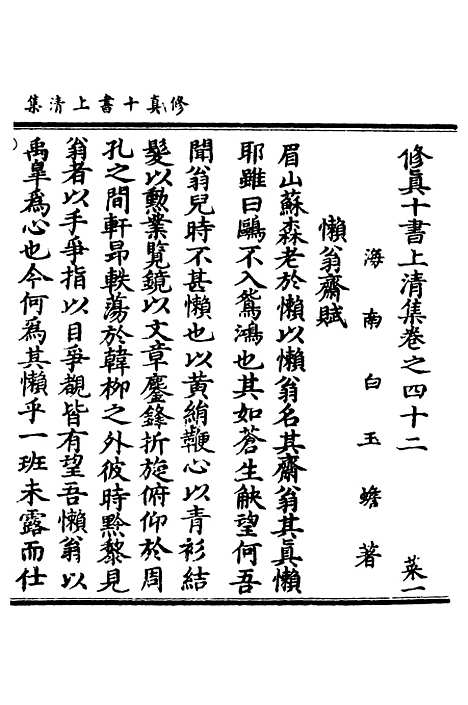 修真十書上清集
修真十書上清集卷之四十二 菜一
海南白玉蟾著
懶翁齋賦
眉山蘇森老於懶以懶翁名其齋翁其真懶
耶雖曰鷗不入鴛鴻也其如蒼生觖望何吾
聞翁兒時不甚懶也以黃絹鞭心以青衫結
髮以勲業覽鏡以文章鏖鋒折旋俯仰於周
孔之間軒昂軼蕩於韓柳之外彼時黔黎見
翁者以手爭指以目爭覩皆有望吾懶翁以
禹臯為心也今何為其懶乎一班未露而仕